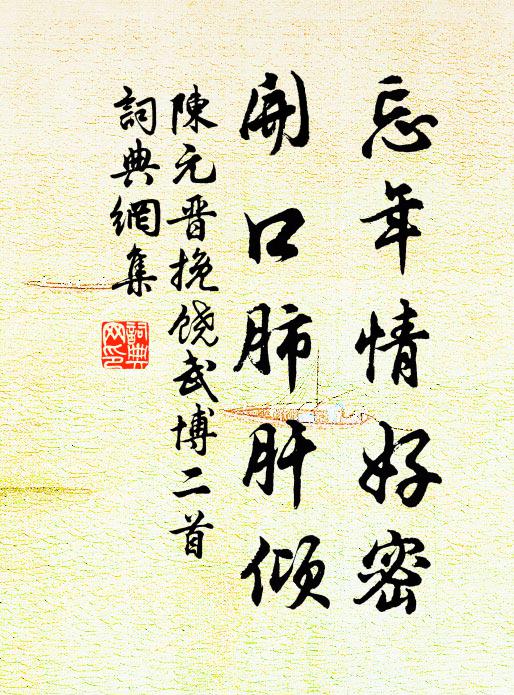 忘年情好密
開口肺肝傾
陳元晋挽饶武博二首
詞典網集
詞典网印